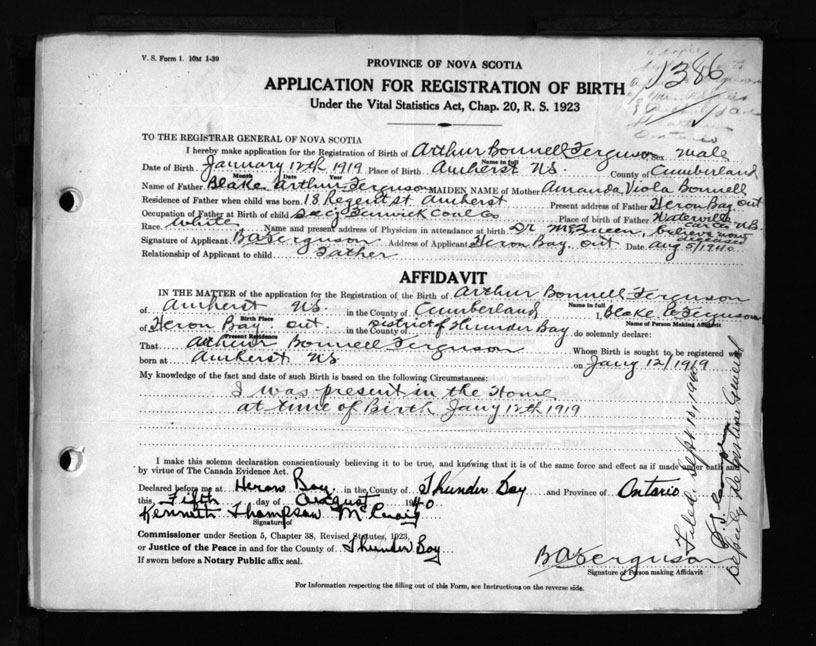 V. S. Form 1. 10M 1-39
PROVINCE OF NOVA SCOTIA
APPLICATION FOR REGISTRATION OF BIRTH
1386
Under the Vital Statistics Act, Chap. 20, R. S. 1923
Ontario
TO THE REGISTRAR GENERAL OF NOVA SCOTIA
I hereby make application for the Registration of Birth of Arthur Bonnell Ferguson Sex male
Name in full
Date of Birth January 12th 1919 Place of Birth Amherst N.S. County of Cumberland
Month Date Year
Name of Father Blake Arthur Ferguson MAIDEN NAME of Mother Amanda Viola Bonnell
Residence of Father when child was born 18 Regent St. Amherst Present address of Father Heron Bay Ont
Occupation of Father at Birth of child Secy Fenwick Coal Co Place of birth of Father Waterville
Carle. N.B.
Race White Name and present address of Physician in attendance at birth Dr McQueen, believe now
deceased
Signature of Applicant B A Ferguson Address of Applicant Heron Bay. Ont Date Aug 5/1940
Relationship of Applicant to child Father
AFFIDAVIT
IN THE MATTER of the application for the Registration of the Birth of Arthur Bonnell Ferguson
Name in full
of Amherst N.S. in the County of Cumberland I, Blake A Ferguson
Birth Place Name of Person Making Affidavit
of Heron Bay. Ont. in the County of District of Thunder Bay do solemnly declare:
Present Residence
That Arthur Bonnell Ferguson Whose Birth is sought to be registered was
born at Amherst N.S. on Jany 12/1919
My knowledge of the fact and date of such Birth is based on the following Circumstances:
I was present in the Home
at time of Birth Jany 12th 1919
I make this solemn declaration conscientiously believing it to be true, and knowing that it is of the same force and effect as if made under oath and
by virtue of The Canada Evidence Act.
Declared before me at Heron Bay in the County of Thunder Bay and Province of Ontario
this Fifth day of August 1940
Kenneth Thompson McCuaig
Signature of
Commissioner under Section 5, Chapter 38, Revised Statutes, 1923,
or Justice of the Peace in and for the County of Thunder Bay
If sworn before a Notary Public affix seal.
B A Ferguson
Signature of Person making Affidavit
For Information respecting the filling out of this Form, see Instructions on the reverse side.
Filed: Sept. 14, 1940
Deputy Registrar General